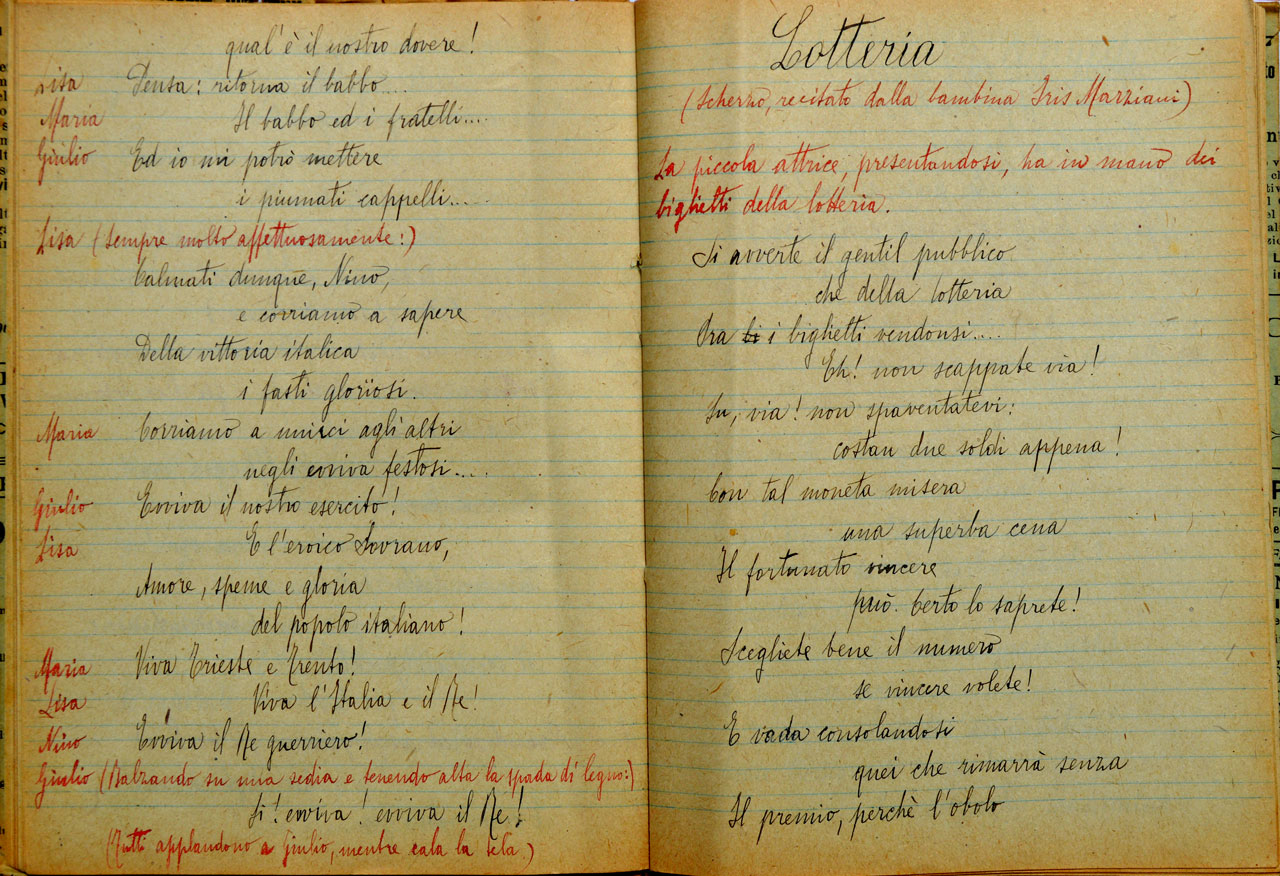 qual'è il nostro dovere!
Lisa Pensa: ritorna il babbo....
Maria Il babbo ed i fratelli....
Giulio Ed io mi potrò mettere
i piumati cappelli.....
Lisa (sempre molto affettuosamente:)
Calmati dunque, Nino,
e corriamo a sapere
Della vittoria italica
i fasti glorïosi.
Maria Corriamo a unirci agli altri
negli evviva festosi....
Giulio Evviva il nostro esercito!
Lisa E l'eroico Sovrano,
Amore, speme e gloria
del popolo italiano!
Maria Viva Trieste e Trento!
Lisa Viva l'Italia e il Re!
Nino Evviva il Re guerriero!
Giulio (Balzando su una sedia e tenendo alta la spada di legno:)
Sì! evviva! evviva il Re!
(Tutti applaudono a Giulio, mentre cala la tela.)
Lotteria
(Scherzo, recitato dalla bambina Iris Marziani)
La piccola attrice, presentandosi, ha in mano dei
biglietti della lotteria.
Si avverte il gentil pubblico
che della lotteria
Ora li i biglietti vendonsi....
Eh! non scappate via!
Su, via! non spaventatevi:
costan due soldi appena!
Con tal moneta misera
una superba cena
Il fortunato vincere
può. Certo lo saprete!
Scegliete bene il numero
se vincere volete!
E vada consolandosi
quei che rimarrà senza
Il premio, perchè l'obolo